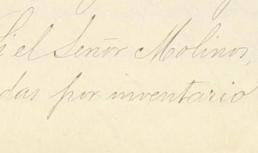 i el Señor Molinos,
das por inventario